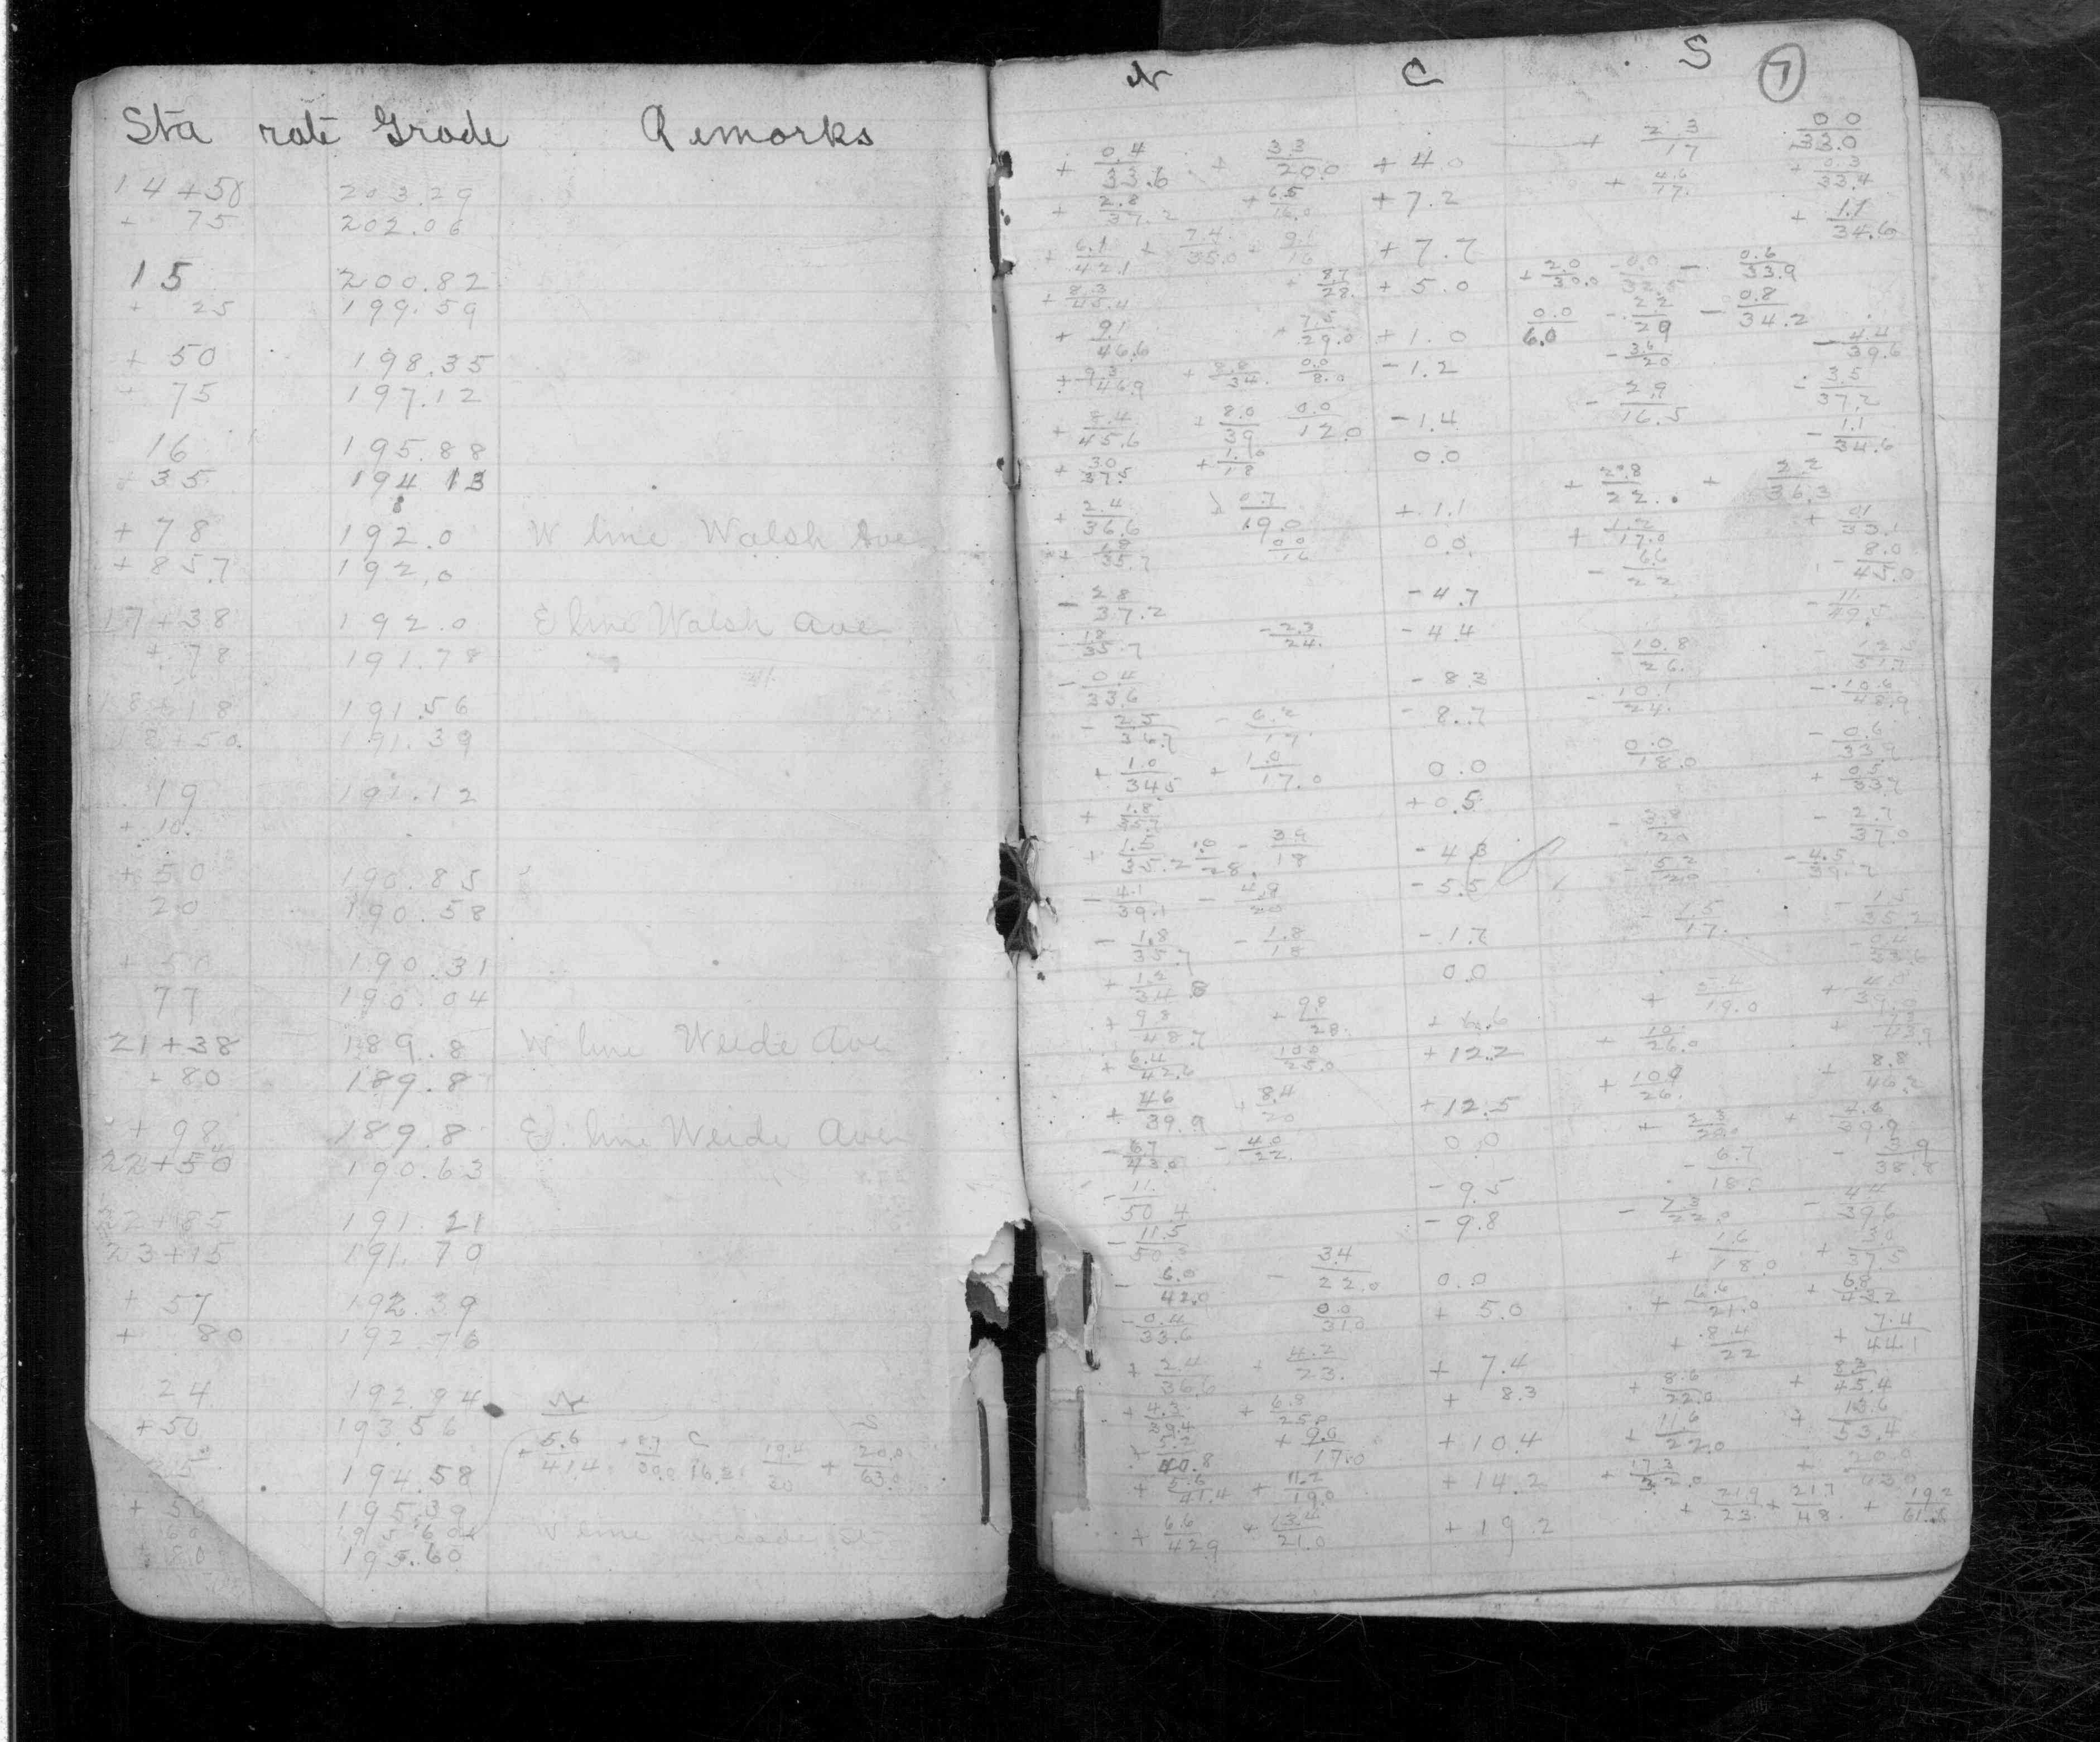 Sta rate Grade Remarks
14+50 203.29
+ 75 202.06
15 200.82
+ 25 199.59
+ 50 198.35
+ 75 197.12
16 195.88
+ 35 194.13
+ 78 192.0 W line Walsh Ave
+ 85.7 192.0
17+38 192.0 E line Walsh Ave
+ 78 191.78
18+18 191.56
18+50 191.39
19 191.12
+ 10
+ 50 190.85
20 190.58
+ 50 190.31
77 190.04
21+38 189.8 W line Weide Ave
+ 80 189.8
+ 98 189.8 E line Weide Ave
22+50 190.63
22+85 191.21
23+15 191.70
+ 57 192.39
+ 80 192.76
24 192.94 N
+50 193.56 S
+ 5.6/41.4 C 16.2 19.4/30 + 20.0/63.0
194.58
+ 50 195.39
60 195.60 W line Arcade St
+ 80 195.60
N C S 7
+ 0.4/33.6 + 3.3/20.0 + 4.0 + 2.3/17 0.0/33.0
+ 2.8/37.2 + 6.5/16.0 + 7.2 + 4.6/17. + 0.3/33.4
+ 6.1/42.1 + 7.4/35.0 + 9.1/16 + 7.7 + 1.1/34.6
+ 8.3/45.4 + 8.7/28. + 5.0 + 2.0/30.0 - 0.6/33.9
+ 9.1/46.6 + 7.5/29.0 + 1.0 0.0/6.0 - 2.2/29 - 0.8/34.2
+ 9.3/46.9 + 8.8/34. 0.0/8.0 - 1.2 - 3.6/20 - 4.4/39.6
+ 8.4/45.6 + 8.0/39 0.0/12.0 - 1.4 - 2.9/16.5 - 3.5/37.2
+ 3.0/37.5 + 1.0/18 0.0 - 1.1/34.6
+ 2.4/36.6 + 0.7/19.0 + 1.1 + 2.8/22. + 2.2/36.3
0.0/16 0.0 + 1.2/17.0 + 0.1/33.1
- 2.8/37.2 - 4.7 - 6.6/22 - 8.0/45.0
- 1.8/35.7 - 2.3/24. - 4.4 - 11./49.5
- 0.4/33.6 - 8.3 - 10.8/26.
- 2.5/36.7 - 8.7 - 10.1/24. - 10.6/48.9
+ 1.0/34.5 + 1.0/17.0 0.0 0.0/18.0 - 0.6/33.9
+ 0.5 + 0.5/33.7
+ 1.5/35.2 1.0/28. - 3.9/18 - 4.8 - 3.8/20 - 2.7/37.0
- 4.1/39.1 - 4.9/20 - 5.5 - 5.2/20 - 4.5/39.7
- 1.8/35.7 - 1.8/18 - 1.7 - 1.5/17.
+ 1.2/34.8 0.0
+ 9.8/48.7 + 9.8/28. + 6.6 19.0
+ 6.4/42.6 10.0/25.0 + 12.2 + 10./26.0
+ 4.6/39.9 + 8.4/20 + 12.5 + 10.9/26. + 8.8/46.2
- 6.7/43.0 - 4.0/22. 0.0 + 4.6/39.9
- 11./50.4 - 9.5 - 6.7/18.0 - 3.9/38.8
- 11.5/50.3 - 9.8 - 4.4/39.6
- 6.0/42.0 - 3.4/22.0 0.0 + 1.6/18.0 + 3.0/37.5
- 0.4/33.6 0.0/31.0 + 5.0 + 6.6/21.0 + 6.8/43.2
+ 2.4/36.6 + 4.2/23. + 7.4 + 8.4/22 + 7.4/44.1
+ 4.3/39.4 + 6.8/25.0 + 8.3 + 8.6/22.0 + 8.3/45.4
+ 5.2/40.8 + 9.6/17.0 + 10.4 + 11.6/22.0 + 13.6/53.4
+ 5.6/41.4 + 11.2/19.0 + 14.2 + 17.3/32.0
+ 6.6/42.9 + 13.4/21.0 + 19.2 + 21.9/23. + 21.7/48. + 19.2/61.8